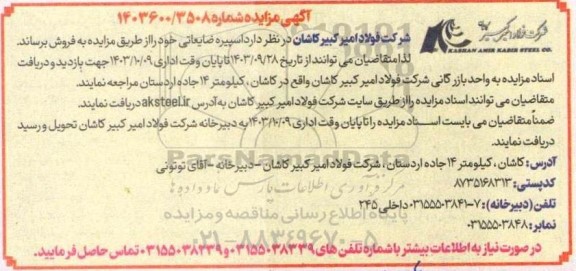 آگهی مزایده شماره ۱۴۰۳۶۰۰/۳۵۰۸
شرکت فولاد امیر کبیر کاشان
KASHAN AMIR KABIR STEEL CO.
شرکت فولاد امیر کبیر کاشان در نظر دارد اسپیره ضایعاتی خود را از طریق مزایده به فروش برساند.
لذا متقاضیان می توانند از تاریخ ۱۴۰۳/۰۹/۲۸ تا پایان وقت اداری ۱۴۰۳/۱۰/۰۹ جهت بازدید و دریافت
اسناد مزایده به واحد بازرگانی شرکت فولاد امیر کبیر کاشان واقع در کاشان ، کیلومتر ۱۴ جاده اردستان مراجعه نمایند.
متقاضیان می توانند اسناد مزایده را از طریق سایت شرکت فولاد امیر کبیر کاشان به آدرس aksteel.ir دریافت نمایند.
ضمناً متقاضیان می بایست اسناد مزایده را تا پایان وقت اداری ۱۴۰۳/۱۰/۰۹ به دبیرخانه شرکت فولاد امیر کبیر کاشان تحویل و رسید
دریافت نمایند.
آدرس: کاشان ، کیلومتر ۱۴ جاده اردستان ، شرکت فولاد امیر کبیر کاشان - دبیرخانه - آقای توتونی
کدپستی: ۸۷۳۵۱۶۸۳۱۳
تلفن (دبیرخانه): ۷-۰۳۱۵۵۵۰۳۸۴۱ داخلی ۲۴۵
نمابر: ۰۳۱۵۵۵۰۳۸۴۸
در صورت نیاز به اطلاعات بیشتر با شماره تلفن های ۰۳۱۵۵۰۳۸۳۳۹ و ۰۳۱۵۵۰۳۸۲۳۹ تماس حاصل فرمایید.
پایگاه اطلاع رسانی مناقصه و مزایده
۰۲۱-۸۸۳۴۹۶۷۰-۵